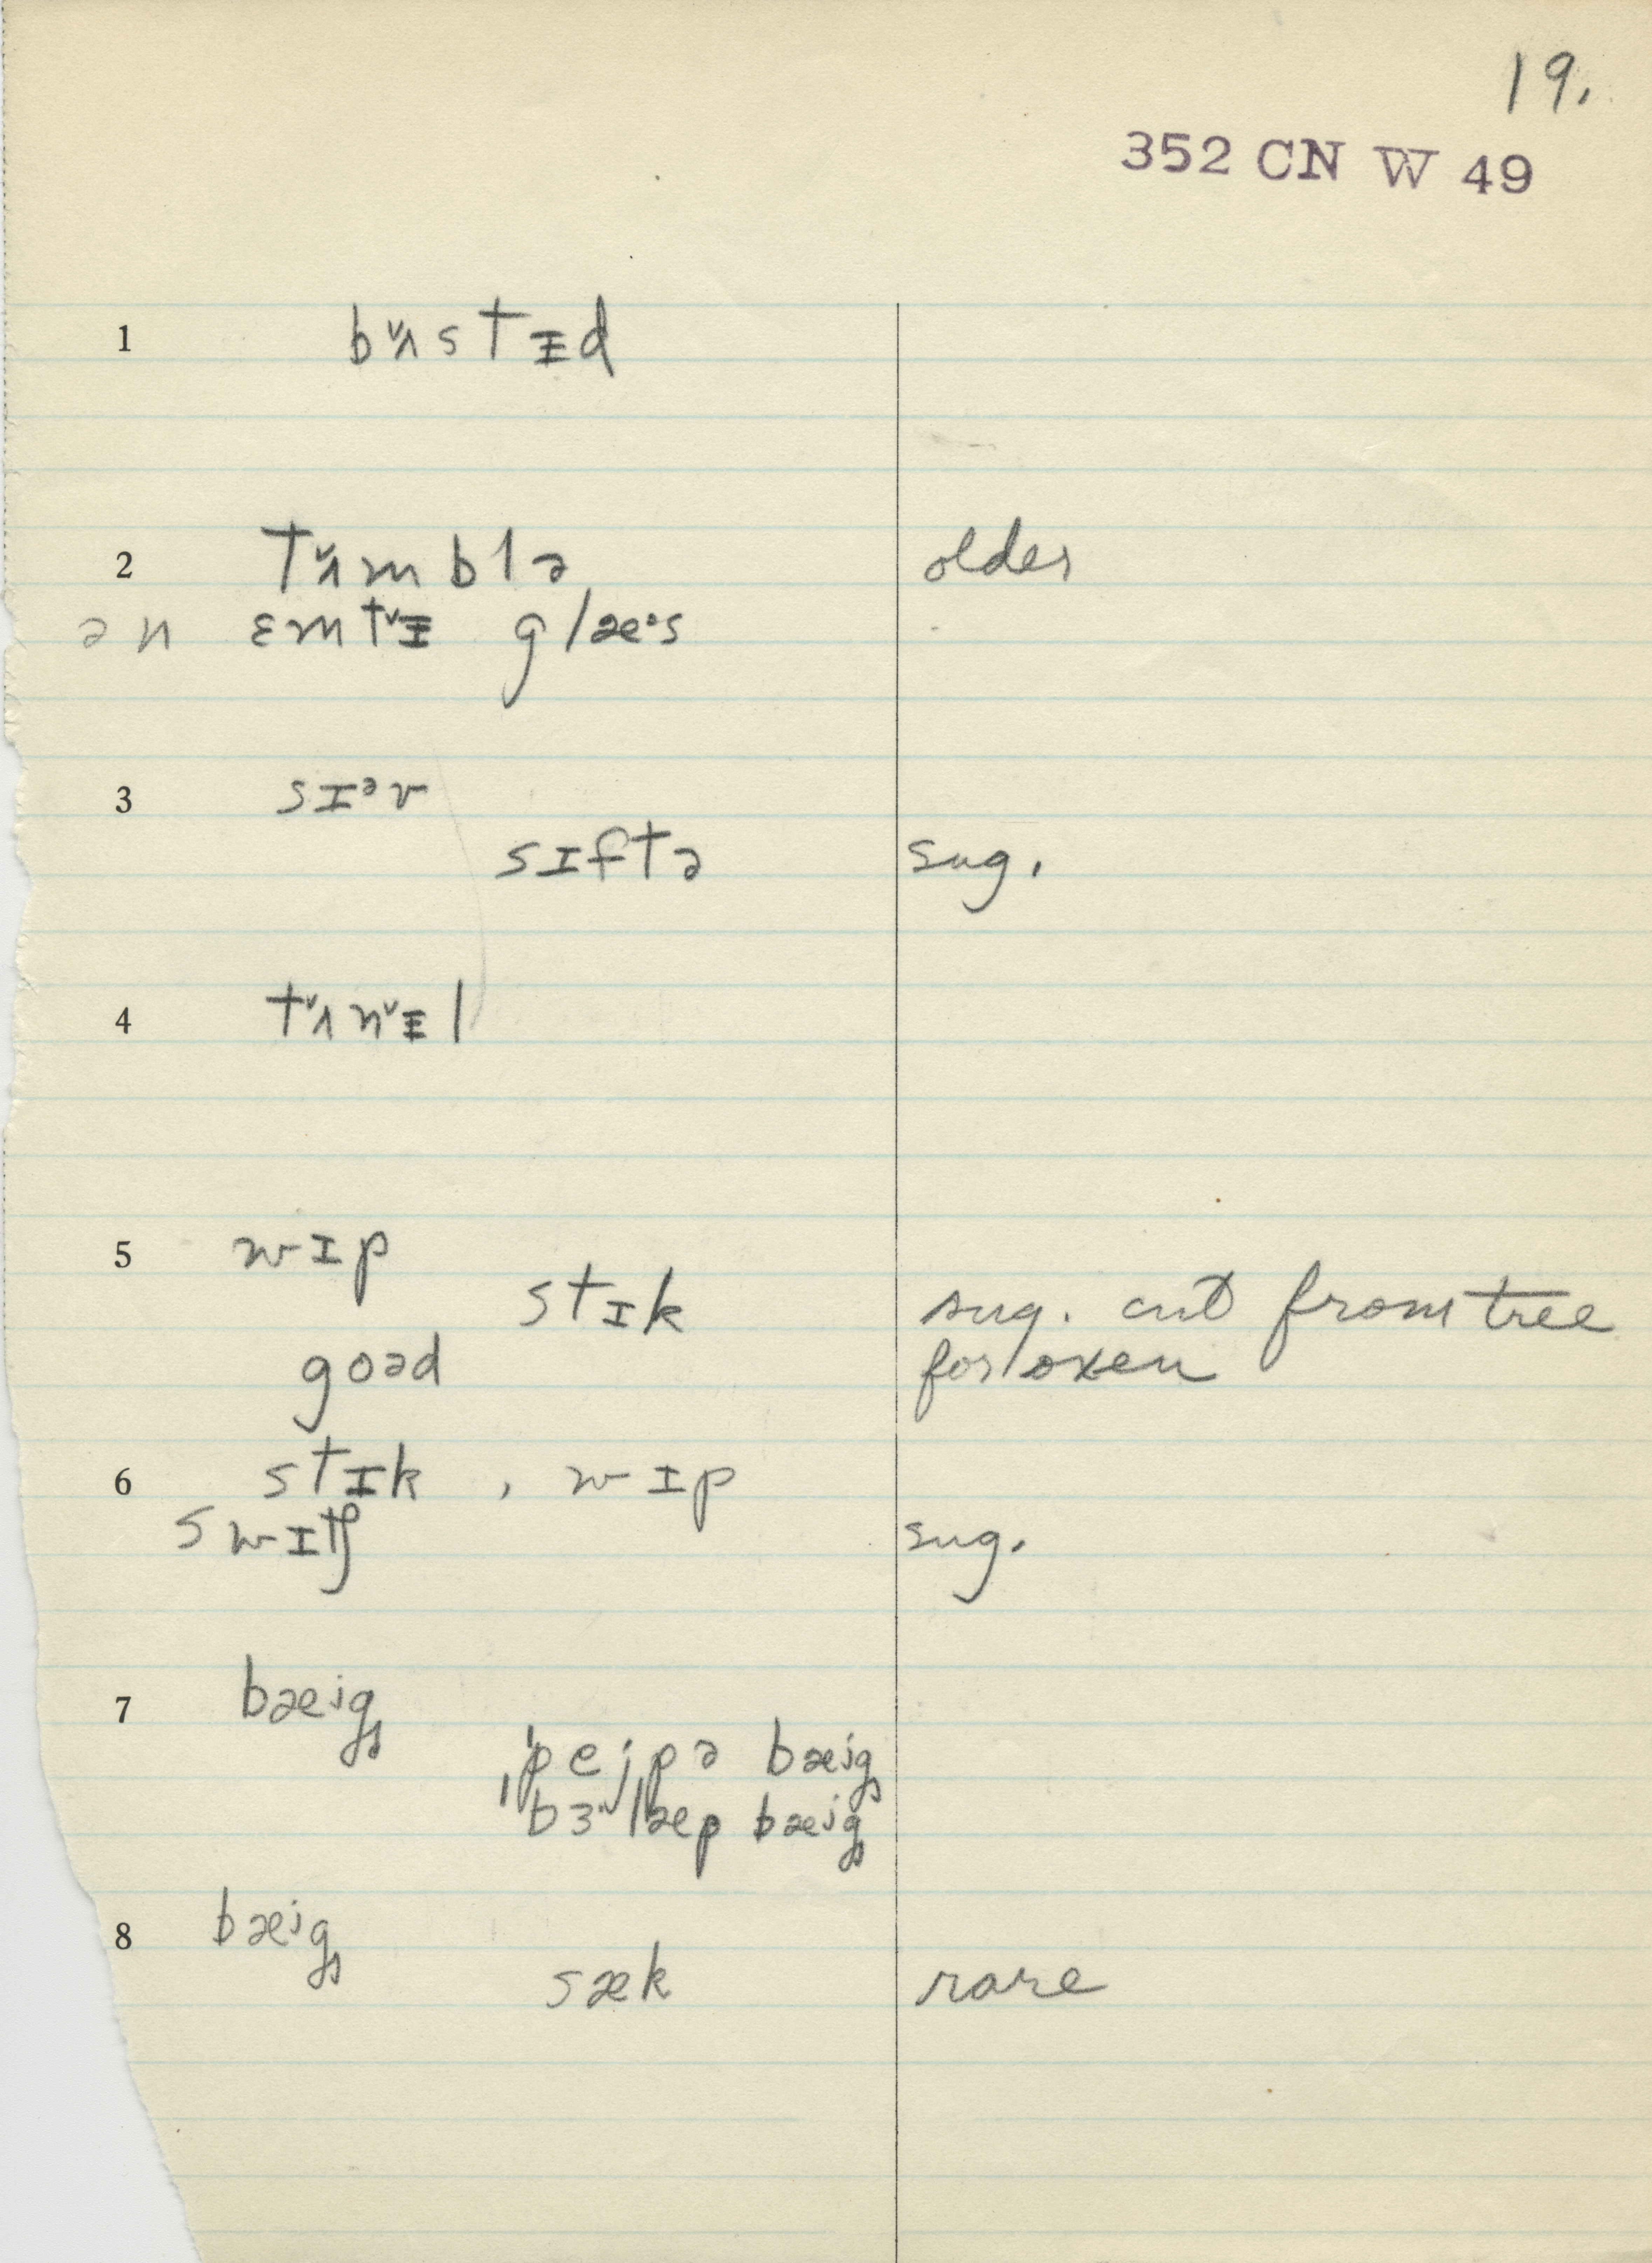 19.
352 CN W 49
1 bʌ̌stᵻd
2 tʌ̌mblə older
ən ɛmtˇᵻ glæˑs
3 sɪᵊv
sɪftə sug.
4 tˇʌnˇᵻl
5 wɪp
stɪk sug. cut from tree
goəd for oxen
6 stɪk , wɪp
swɪtʃ sug.
7 bæig
ˈpejpə bæig
ˈbɜˑˌlæp bæig
8 bæig
sæk rare